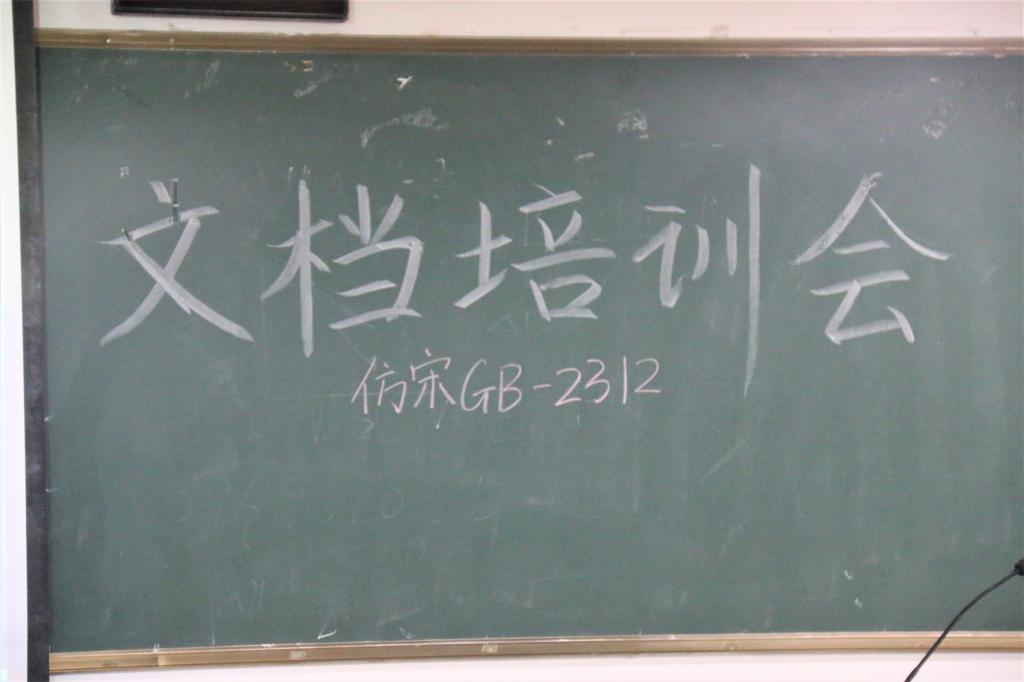 文档培训会
仿宋GB-2312